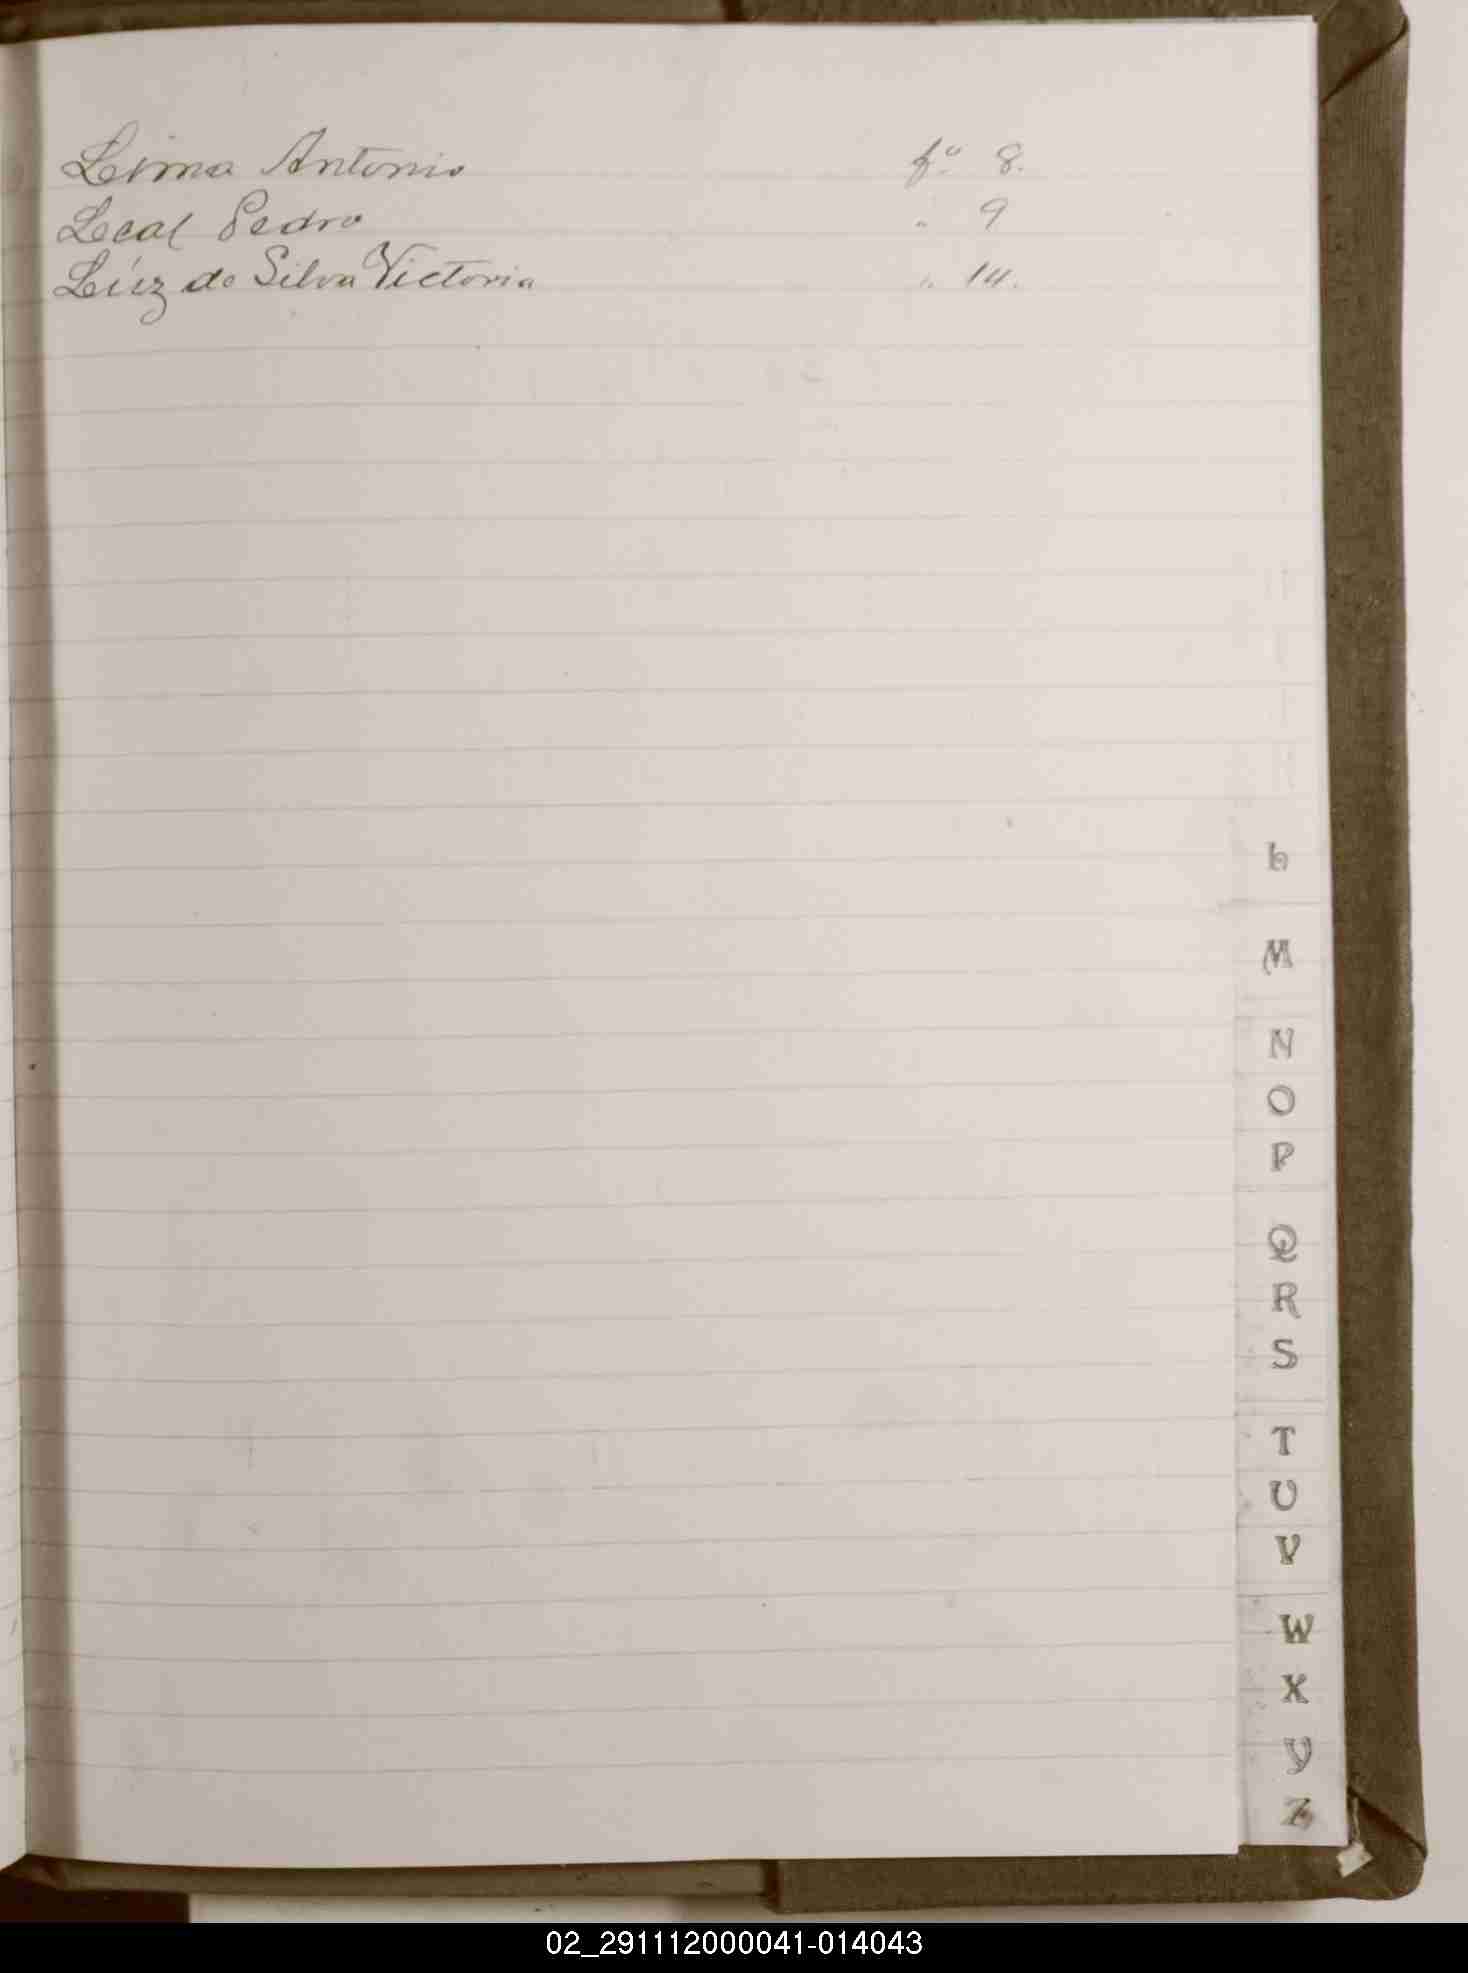 Lima Antonio fº 8.
Leal Pedro " 9
Lúiz da Silva Victoria " 14.
L
M
N
O
P
Q
R
S
T
U
V
W
X
Y
Z
02_291112000041-014043